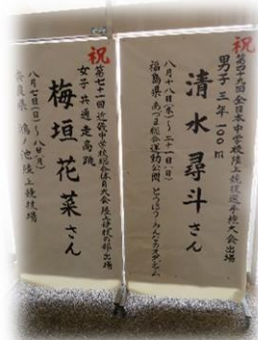 祝
第四十九回全日本中学校陸上競技選手権大会出場
男子三年一〇〇m
清水尋斗さん
八月十八日(水)~二十一日(土)
福島県 あづま総合運動公園 とうほう・みんなのスタジアム
祝
第七十一回近畿中学校総合体育大会陸上競技の部出場
女子共通走高跳
梅垣花菜さん
八月七日(日)~八日(月)
奈良県 鴻ノ池陸上競技場